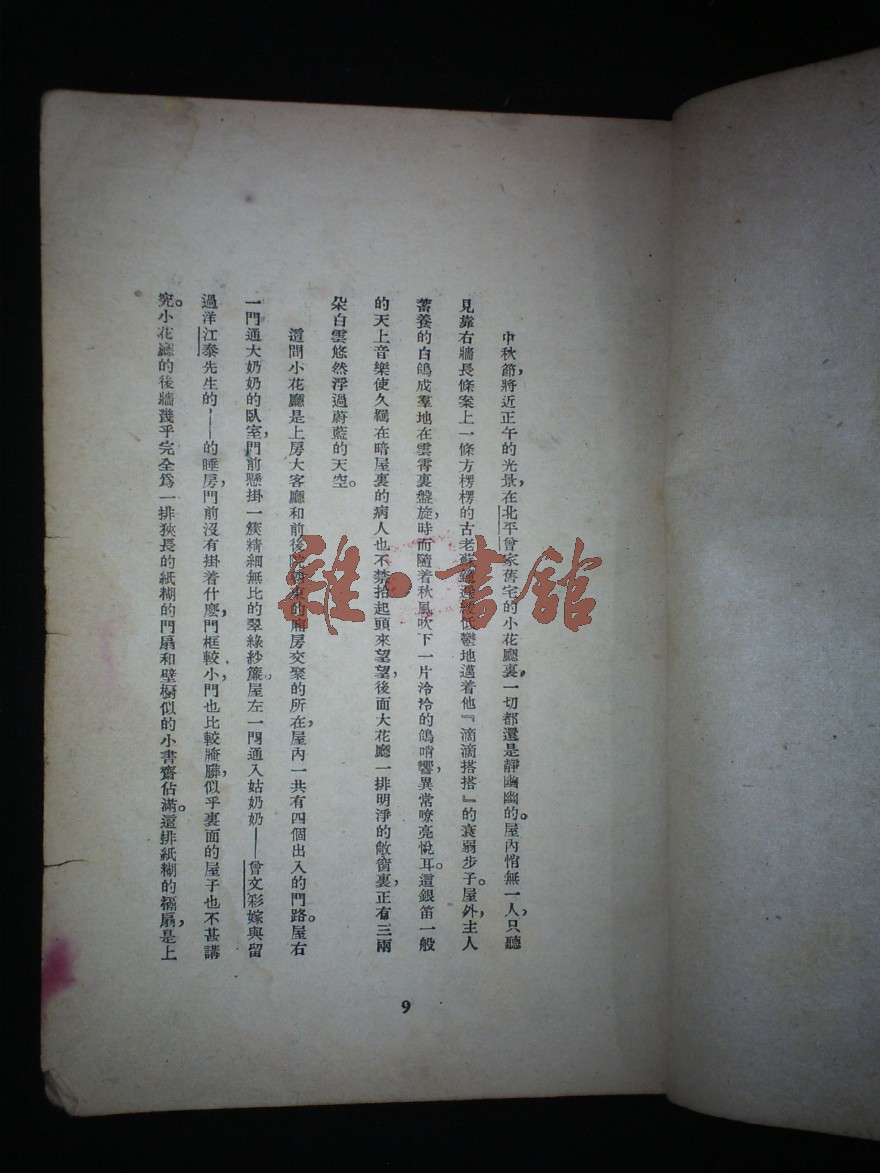 中秋節，將近正午的光景，在北平曾家舊宅的小花廳裏，一切都還是靜幽幽的。屋內悄無一人，只聽
見靠右牆長條案上一條方楞楞的古老蘇鐘遲緩低鬱地邁着他『滴滴搭搭』的衰弱步子。屋外，主人
蓄養的白鴿成羣地在雲霄裏盤旋，時而隨着秋風吹下一片泠泠的鴿哨響，異常嘹亮悅耳。這銀笛一般
的天上音樂使久癱在暗屋裏的病人也不禁抬起頭來望望，後面大花廳一排明淨的敞窗裏，正有三兩
朵白雲悠然浮過蔚藍的天空。
這間小花廳是上房大客廳和前後院東的廂房交聚的所在，屋內一共有四個出入的門路。屋右
一門通大奶奶的臥室，門前懸掛一簇精細無比的翠綠紗簾。屋左一門通入姑奶奶——曾文彩，嫁與留
過洋江泰先生的——的睡房，門前沒有掛着什麼，門框較小，門也比較腌臢，似乎裏面的屋子也不甚講
究。小花廳的後牆幾乎完全爲一排狹長的紙糊的門扇和壁櫥似的小書齋佔滿。這排紙糊的槅扇，是上
9
雜·書館